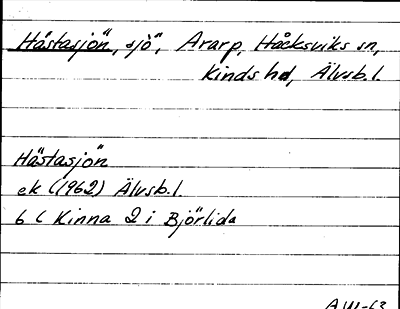 Hästasjön, sjö, Ararp, Håcksviks sn,
Kinds hd, Älvsb.l.
Hästasjön
ek (1962) Älvsb.l.
b ( Kinna 2 i Björlida